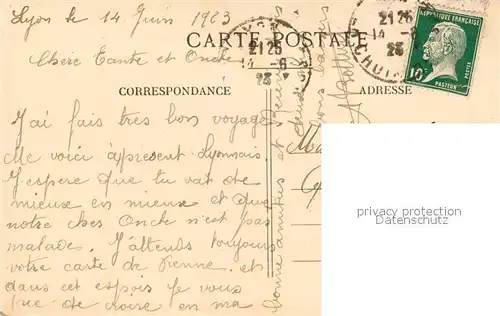 Lyon le 14 Juin 1923
CARTE POSTALE
Chère Tante et Oncle
CORRESPONDANCE
ADRESSE
J'ai fais très bon voyage
Me voici àprésent Lyonnais
J'espere que tu vat de
mieux en mieux et que
notre cher Oncle n'est pas
malade. J'attends toujours
votre carte de Vienne. et
dans cet espoir Je vous
prie de croire en ma
bonne amities et
2125
14-6
23
2125
14-6
23
REPUBLIQUE FRANÇAISE
10c
POSTES
PASTEUR
privacy protection
Datenschutz